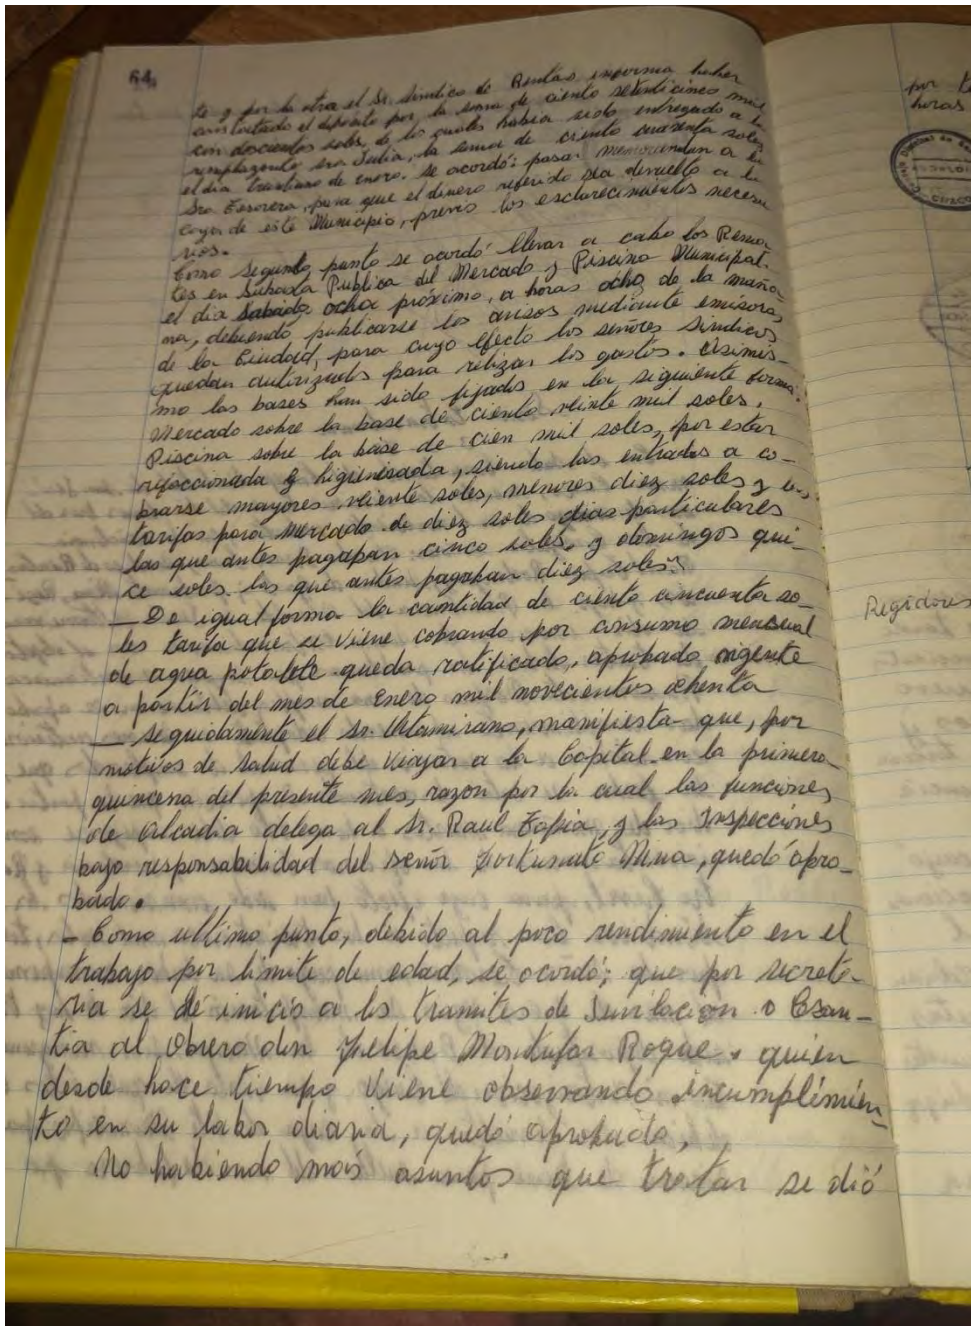 64
te y por la otra el Sr. Síndico de Rentas informa haber
constactado el depósito por la suma de ciento setenticinco mil
con doscientos soles, de los cuales había sido entregado a la
remplazante sra Julia, la suma de ciento cuarenta soles
el día treintiuno de enero. se acordó: pasar memorandum a la
Sra. Tesorera, para que el dinero referido sea devuelto a la
caja de este Municipio, previo los esclarecimientos necesa
rios.
Como segundo punto se acordó llevar a cabo los Rema
tes en Subasta Publica del Mercado y Piscina Municipal.
el dia sabado ocho próximo, a horas ocho de la maña-
na, debiendo publicarse los avisos mediante emisoras
de la Ciudad, para cuyo efecto los señores síndicos
quedan autorizados para relizar los gastos. Asimis-
mo las bases han sido fijados en la siguiente forma:
Mercado sobre la base de ciento veinte mil soles.
Piscina sobre la base de cien mil soles, por estar
refaccionada y higienisada, siendo las entradas a co-
brarse mayores veinte soles, menores diez soles y las
tarifas para mercado de diez soles dias particulares
las que antes pagaban cinco soles, y domingos quin-
ce soles. las que antes pagaban diez soles.
— De igual forma la cantidad de ciento cincuenta so-
les tarifa que se viene cobrando por consumo mensual
de agua potable queda ratificado, aprobado vigente
a partir del mes de Enero mil novecientos ochenta
— Seguidamente el Sr. Altamirano, manifiesta que, por
motivos de salud debe viajar a la Capital en la primera
quincena del presente mes, razon por la cual las funciones
de alcadia delega al Sr. Raul Tapia, y las Inspecciones
bajo responsabilidad del señor Fortunato Mina, quedó apro-
bado.
- Como ultimo punto, debido al poco rendimiento en el
trabajo por limite de edad, se acordó; que por secreta-
ria se dé inicio a los tramites de Juvilacion o Cesan-
tia al Obrero don Felipe Montufar Roque. quien
desde hace tiempo viene observando incumplimien-
to en su labor diaria, quedó aprobado,
No habiendo más asuntos que tratar se dió
por
horas
Regidores